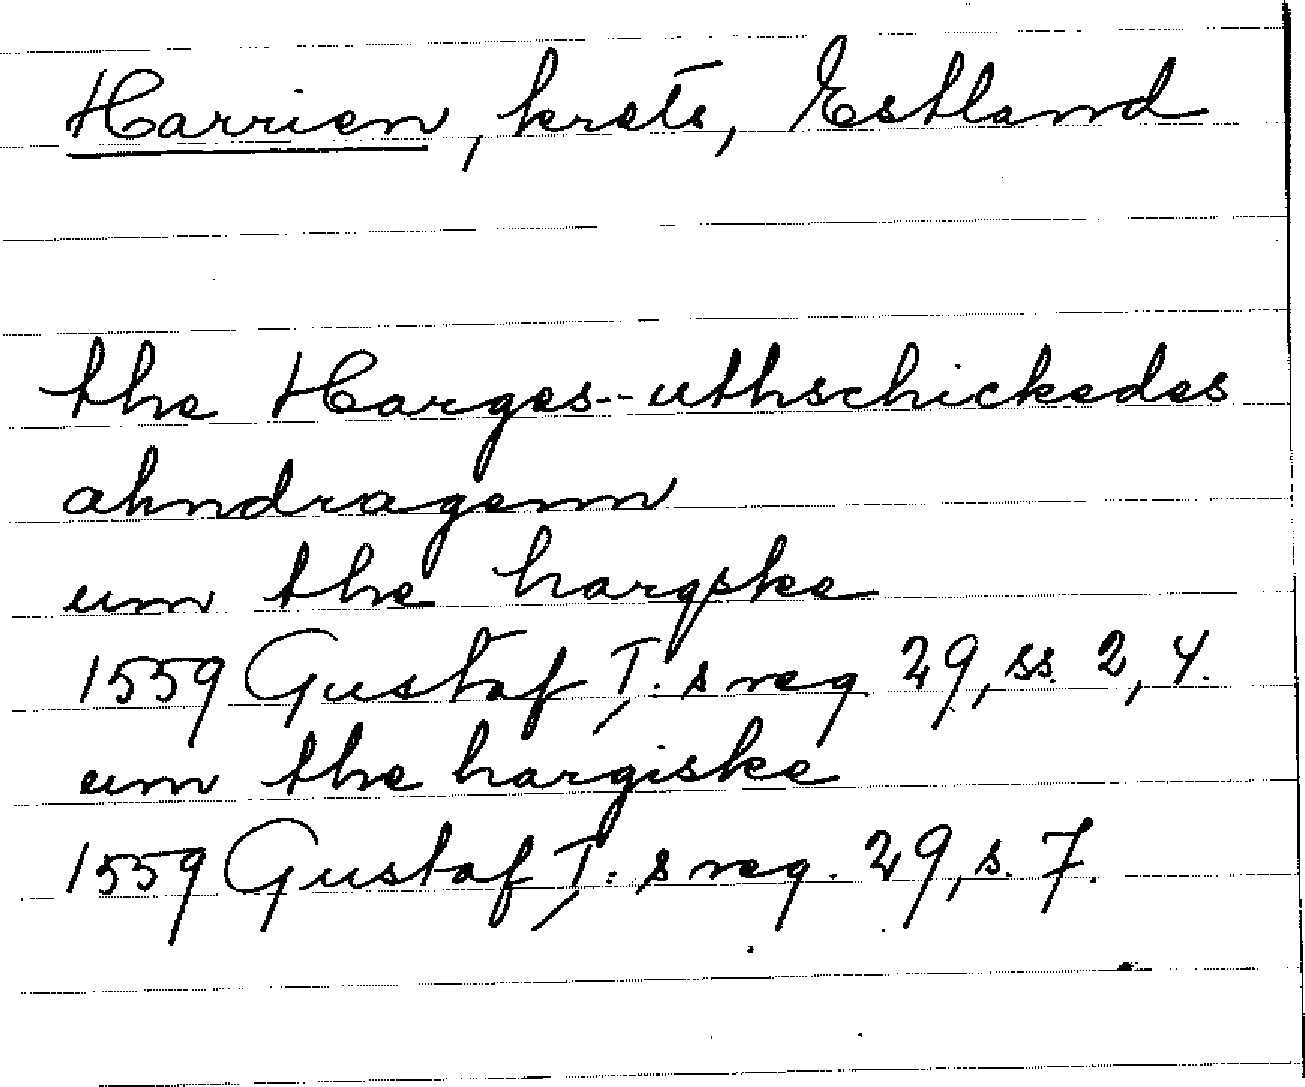 Harrien, krets, Estland
the Harges-uthschickedes
ahndragenn
um the hargske
1559 Gustaf I:s reg 29, ss. 2, 4.
um the hargiske
1559 Gustaf I:s reg. 29, s. 7.